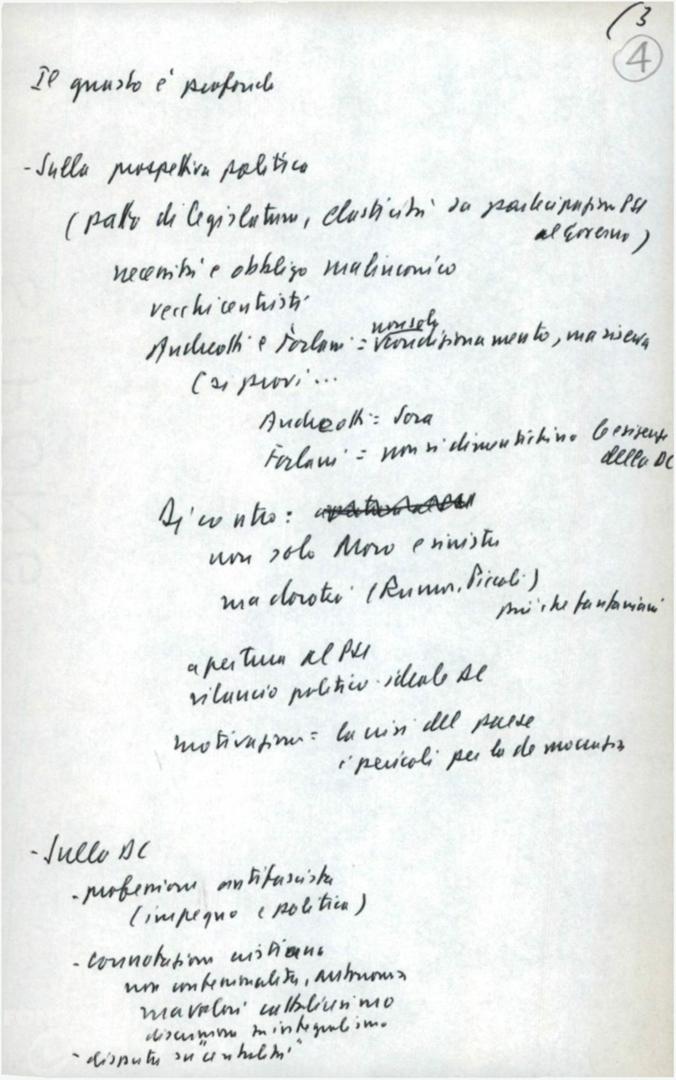 (3
4
Il guasto è profondo
- Sulla prospettiva politica
(patto di legislatura, elasticità su partecipazione PSI
al Governo)
necessità e obbligo malinconico
vecchi centristi
non solo
Andreotti e Forlani = condizionamento, ma riserva
(si provi ...
Andreotti = Sora
Forlani = non si dimentichino le esigenze
della DC
Di contro:
non solo Moro e sinistra
ma dorotei (Rumor, Piccoli)
più che fanfaniani
apertura al PSI
rilancio politico-ideale DC
motivazione = la crisi del paese
i pericoli per la democrazia
- Sulla DC
- professione antifascista
(impegno e politica)
- connotazione cristiana
non confessionalità, autonomia
ma valori cattolicesimo
discussione su integralismo
- disputa su "centralità"